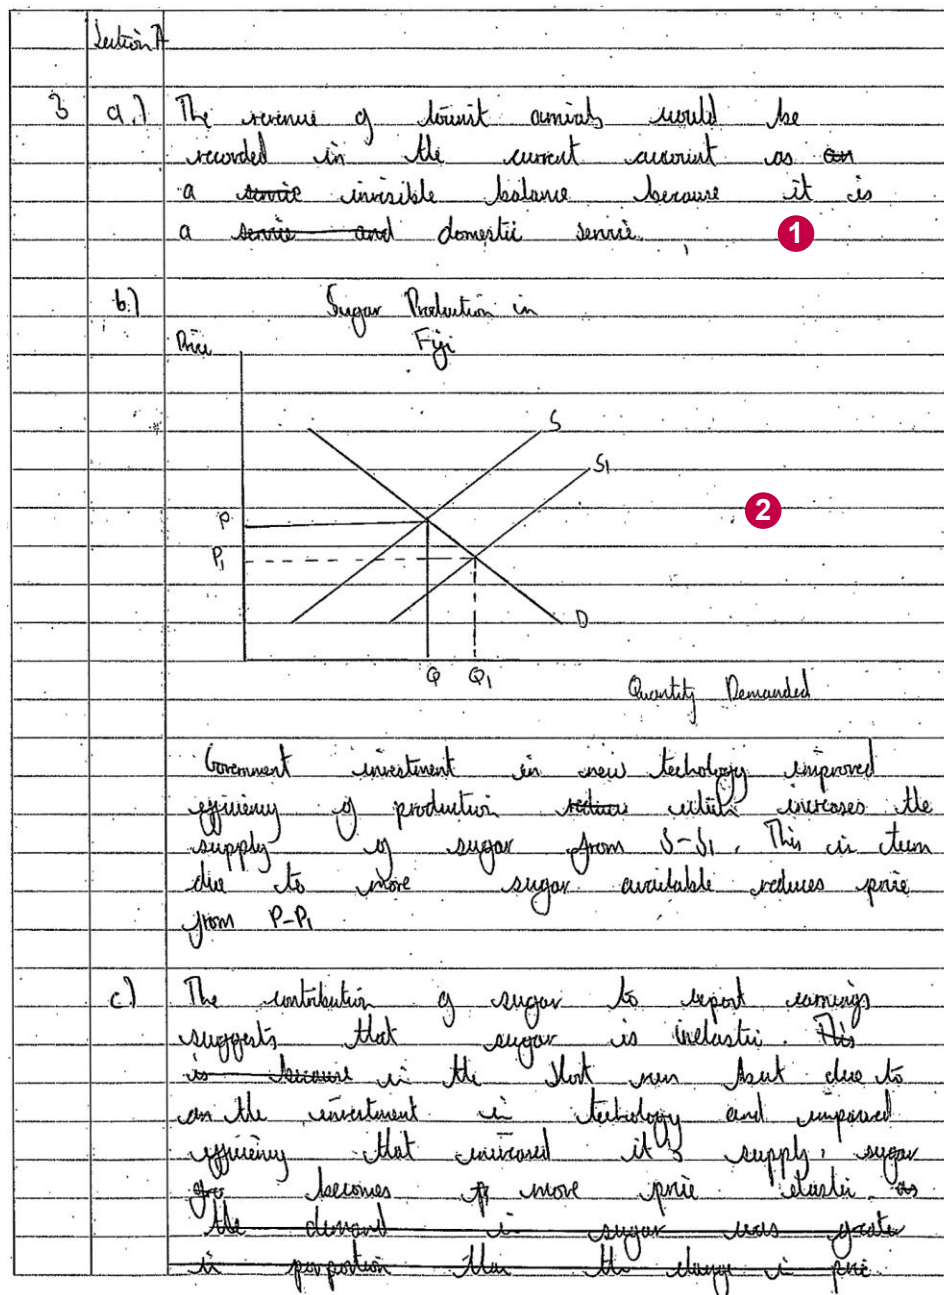 Section A
3 a.) The revenue of tourist arrivals would be
recorded in the current account as an
a service invisible balance because it is
a service and domestic service.
1
b.) Sugar Production in
Fiji
Price
S
S1
2
P
P1
D
Q Q1
Quantity Demanded
Government investment in new techology improved
efficiency of production reduce which increases the
supply of sugar from S-S1. This in turn
due to more sugar available reduces price
from P-P1
c.) The contribution of sugar to export earnings
suggests that sugar is inelastic. This
is because in the short run but due to
an the investment in techology and improved
efficiency that increased it's supply, sugar
becomes more price elastic as
the demand in sugar was greater
in porportion than the change in price.